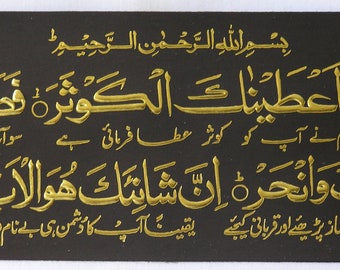 بِسْمِ اللهِ الرَّحْمٰنِ الرَّحِیْمِ
اَعْطَیْنٰكَ الْكَوْثَرَ
نے آپ کو کوثر عطا فرمائی ہے سو آ
وَانْحَرْ اِنَّ شَانِئَكَ هُوَ الْاَبْ
پڑھئیے اور قربانی کیجئے یقیناً آپ کا دشمن ہی بے نام و